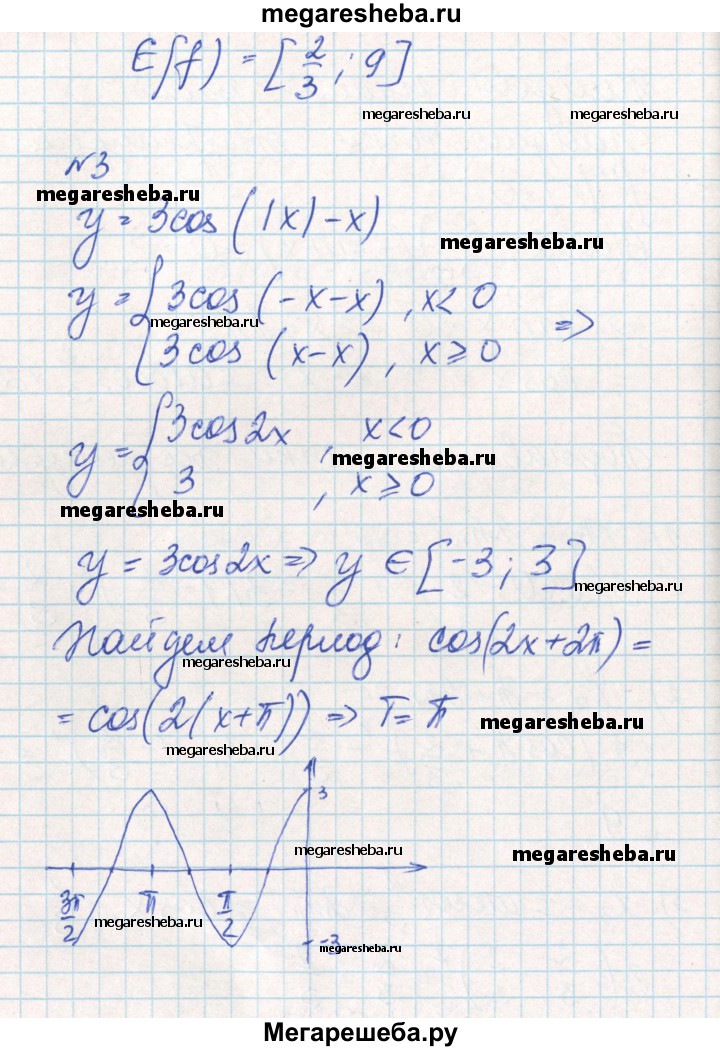 megaresheba.ru
E(f) = [2/3; 9]
megaresheba.ru megaresheba.ru
№3
megaresheba.ru
y = 3cos(|x|-x)
megaresheba.ru
y = { 3cos(-x-x), x<0
megaresheba.ru
3cos(x-x), x⩾0 =>
y = { 3cos2x, x<0
megaresheba.ru
3, x⩾0
megaresheba.ru
y = 3cos2x => y ∈ [-3; 3]
megaresheba.ru
Найдем период: cos(2x+2π) =
megaresheba.ru
= cos(2(x+π)) => T = π
megaresheba.ru
megaresheba.ru
3
megaresheba.ru
megaresheba.ru
3π/2 π π/2
megaresheba.ru
-3
megaresheba.ru
Мегарешеба.ру